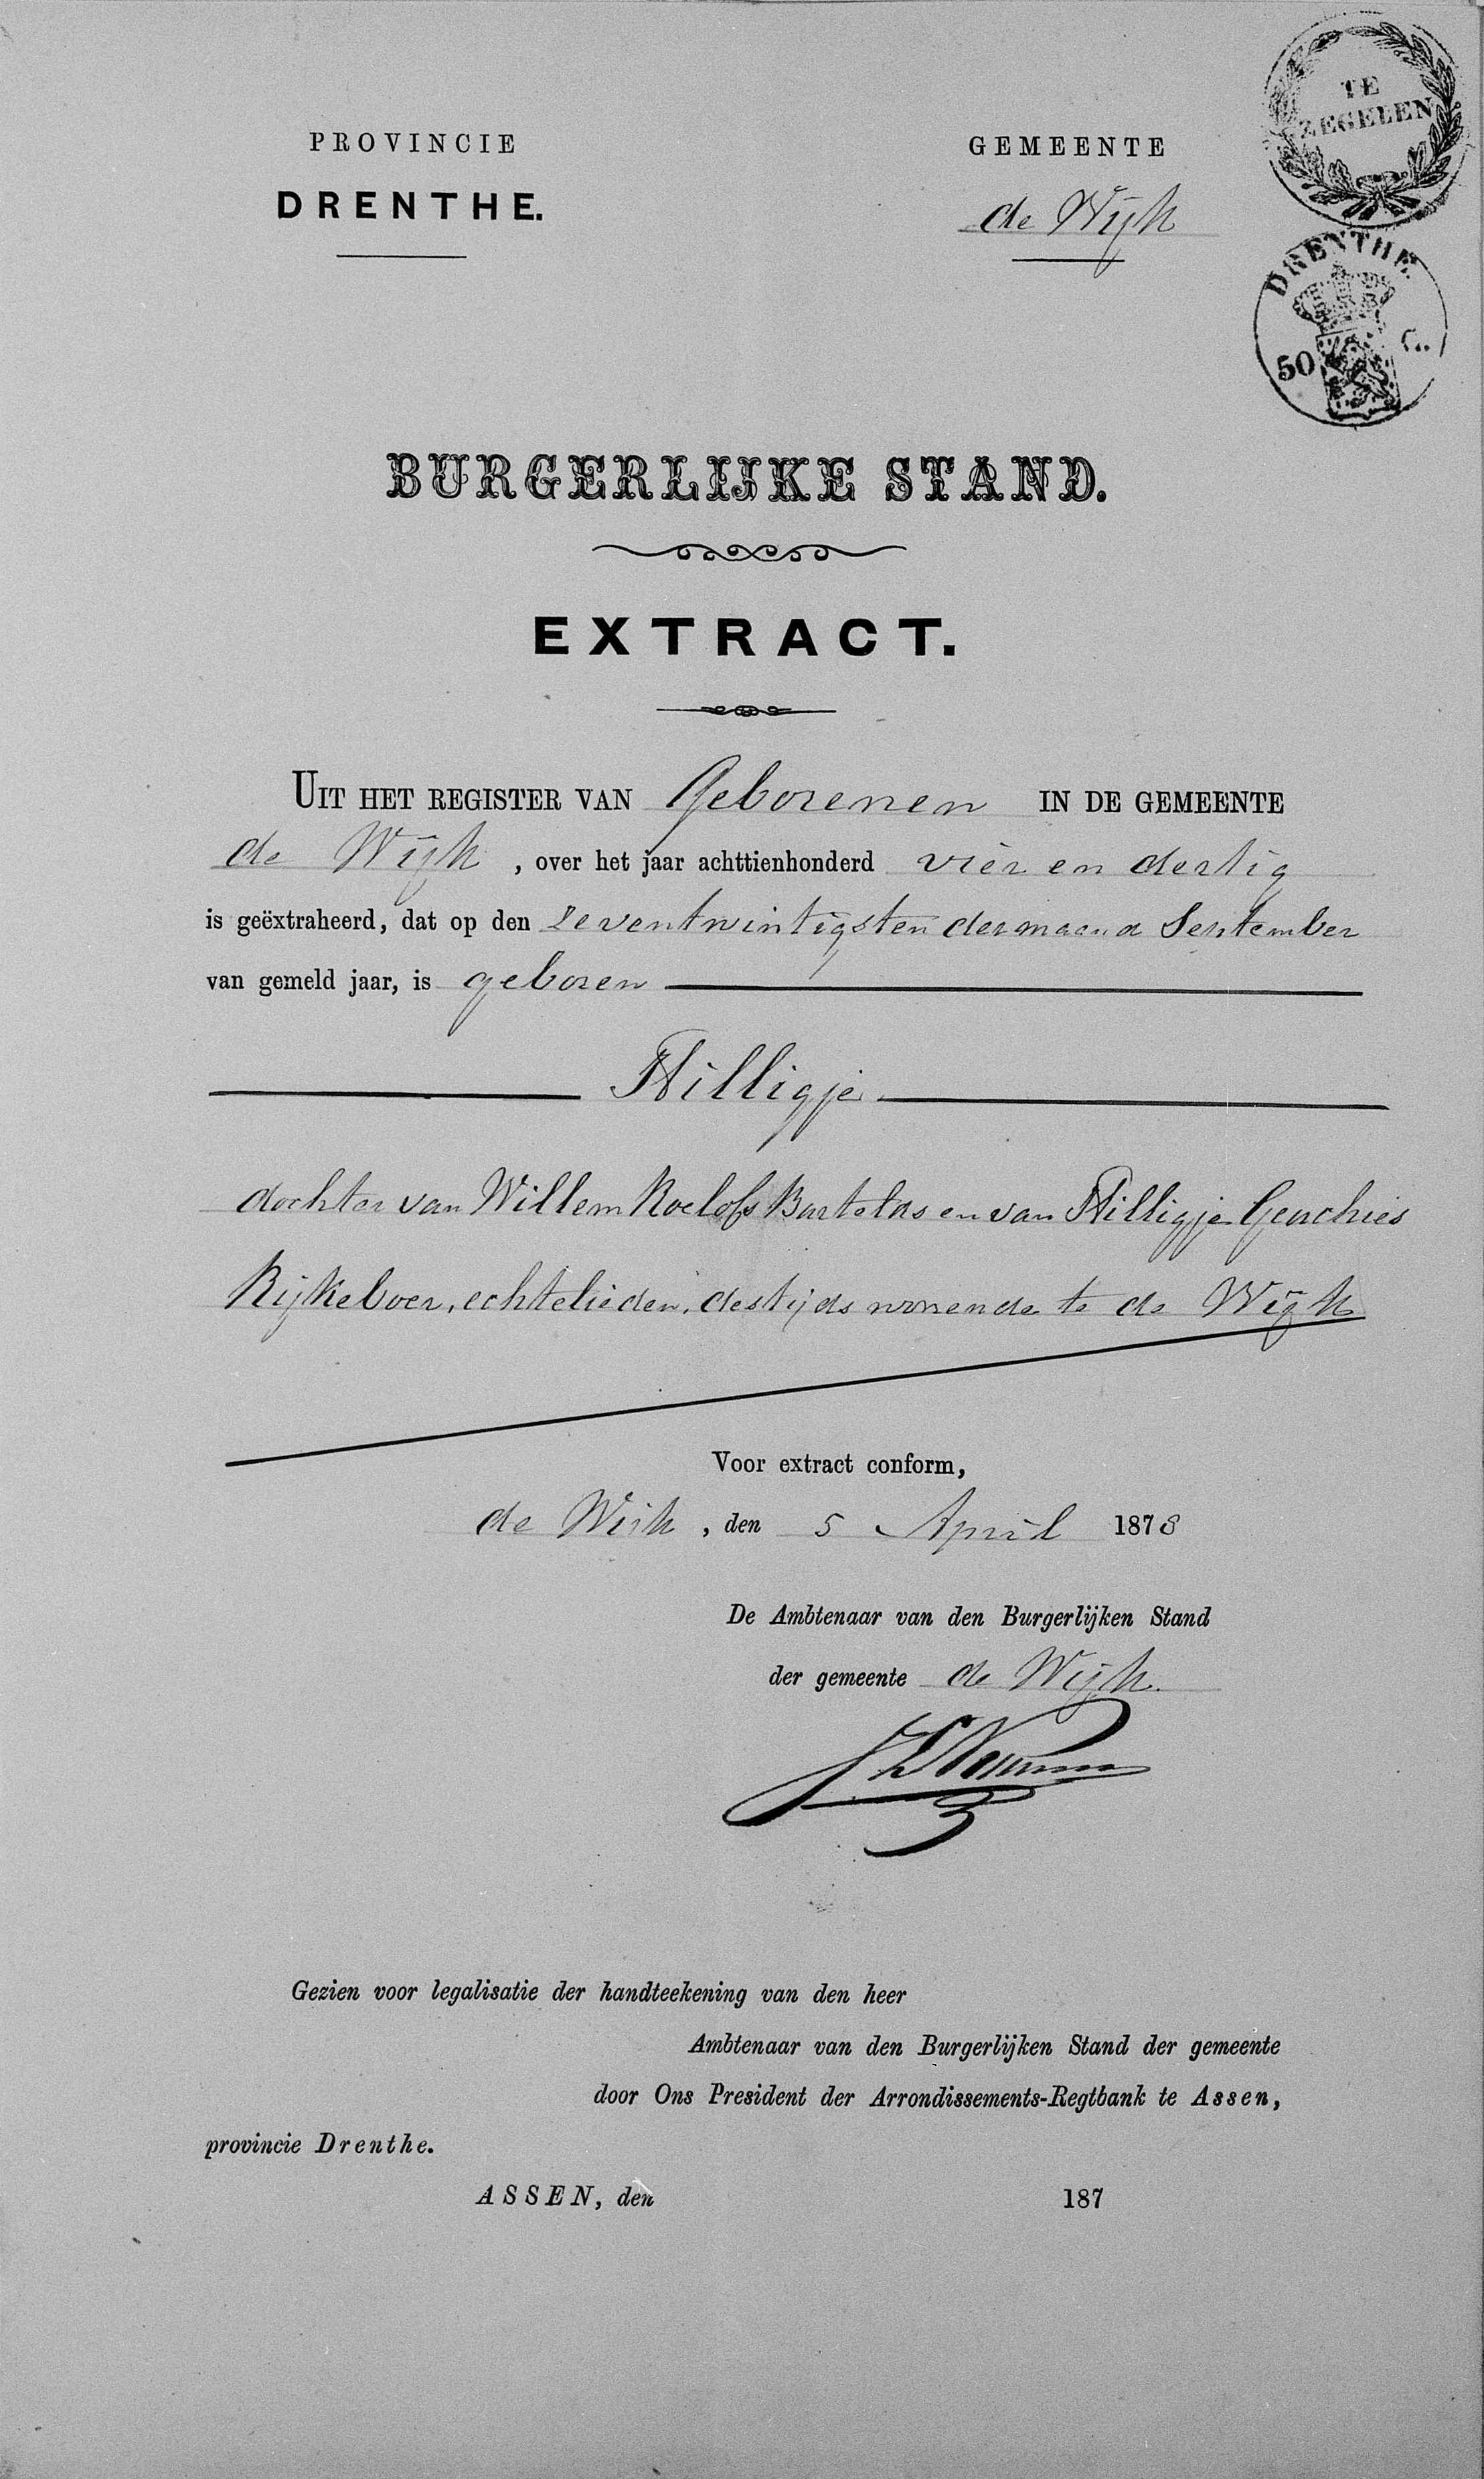 TE
ZEGELEN
PROVINCIE
DRENTHE.
GEMEENTE
de Wijk
DRENTHE.
50 C.
BURGERLIJKE STAND.
EXTRACT.
UIT HET REGISTER VAN Geborenen IN DE GEMEENTE
de Wijk, over het jaar achttienhonderd vier en dertig
is geëxtraheerd, dat op den zeventwintigsten der maand September
van gemeld jaar, is geboren
Hilligje
dochter van Willem Roelofs Bartelds en van Hilligje Geuchies
Rijkeboer, echtelieden, destijds wonende te de Wijk
Voor extract conform,
de Wijk, den 5 April 1878
De Ambtenaar van den Burgerlijken Stand
der gemeente de Wijk.
Gezien voor legalisatie der handteekening van den heer
Ambtenaar van den Burgerlijken Stand der gemeente
door Ons President der Arrondissements-Regtbank te Assen,
provincie Drenthe.
ASSEN, den 187